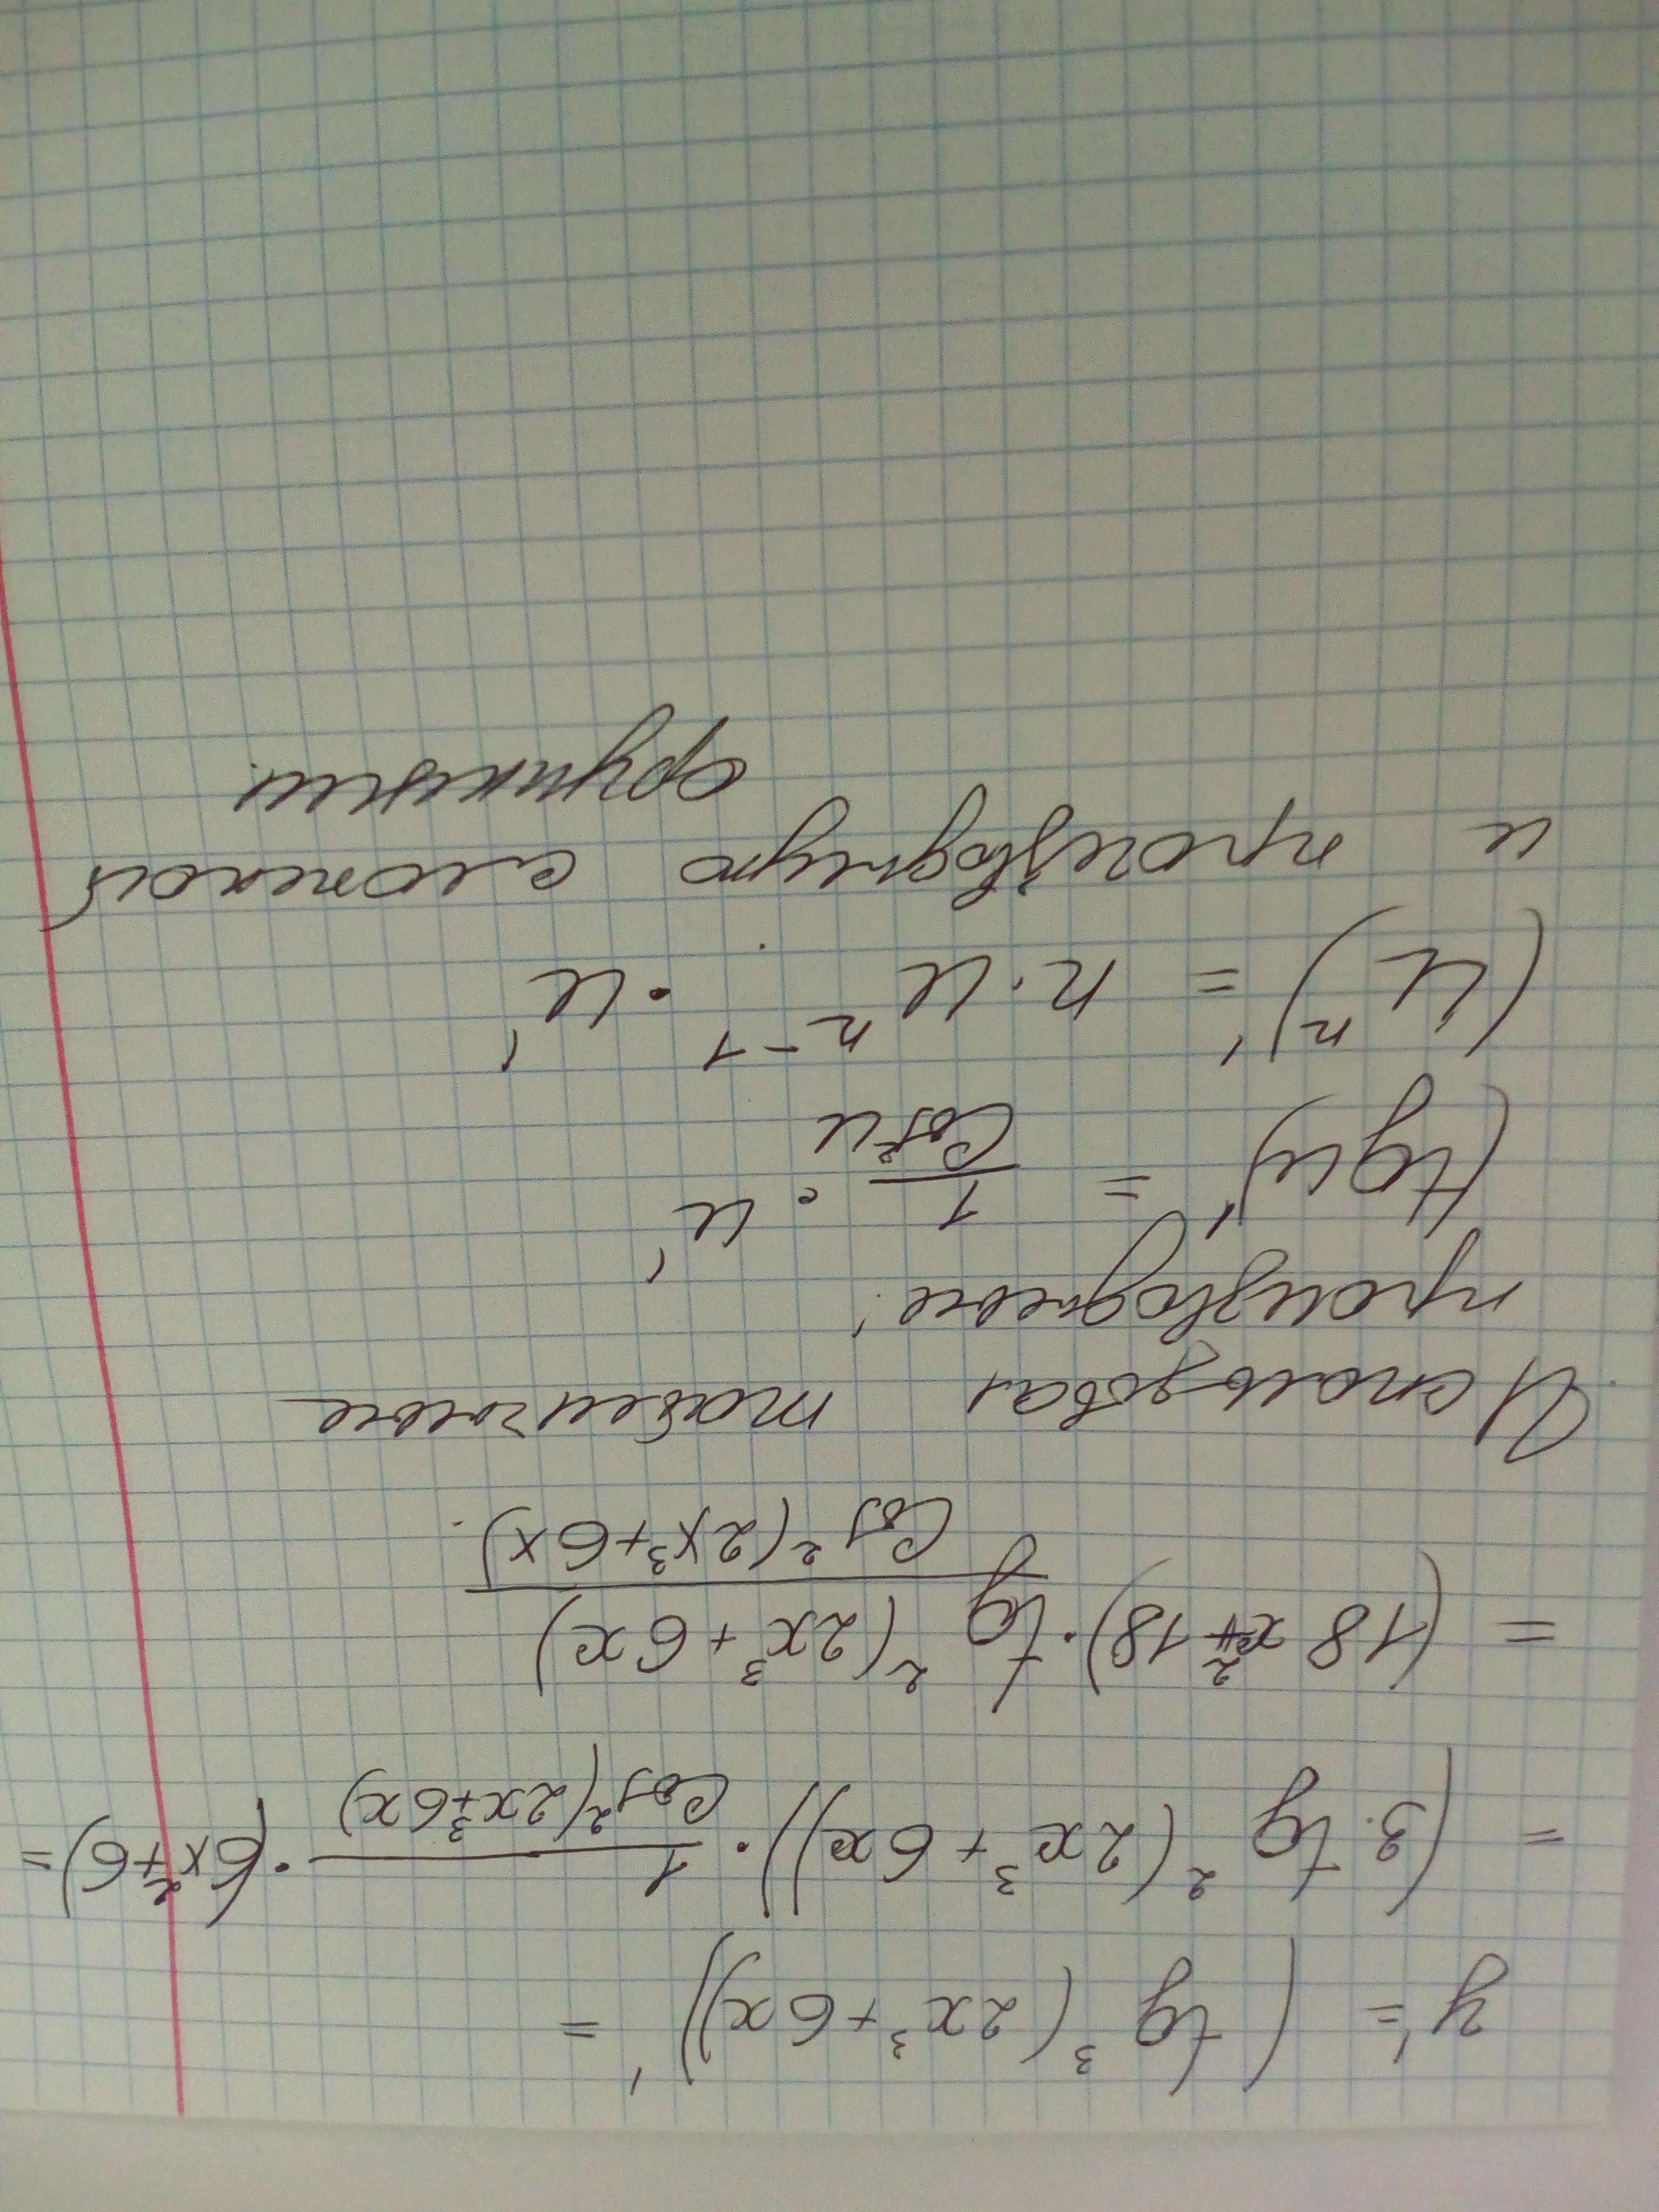 y' = (tg³(2x³+6x))' =
= (3·tg²(2x³+6x))·1/Cos²(2x³+6x)·(6x²+6) =
= (18x²+18)·tg²(2x³+6x)/Cos²(2x³+6x).
Использовал табличные
производные:
(tg u)' = 1/Cos²u · u'
(uⁿ)' = n·uⁿ⁻¹·u'
и производную сложной
функции.